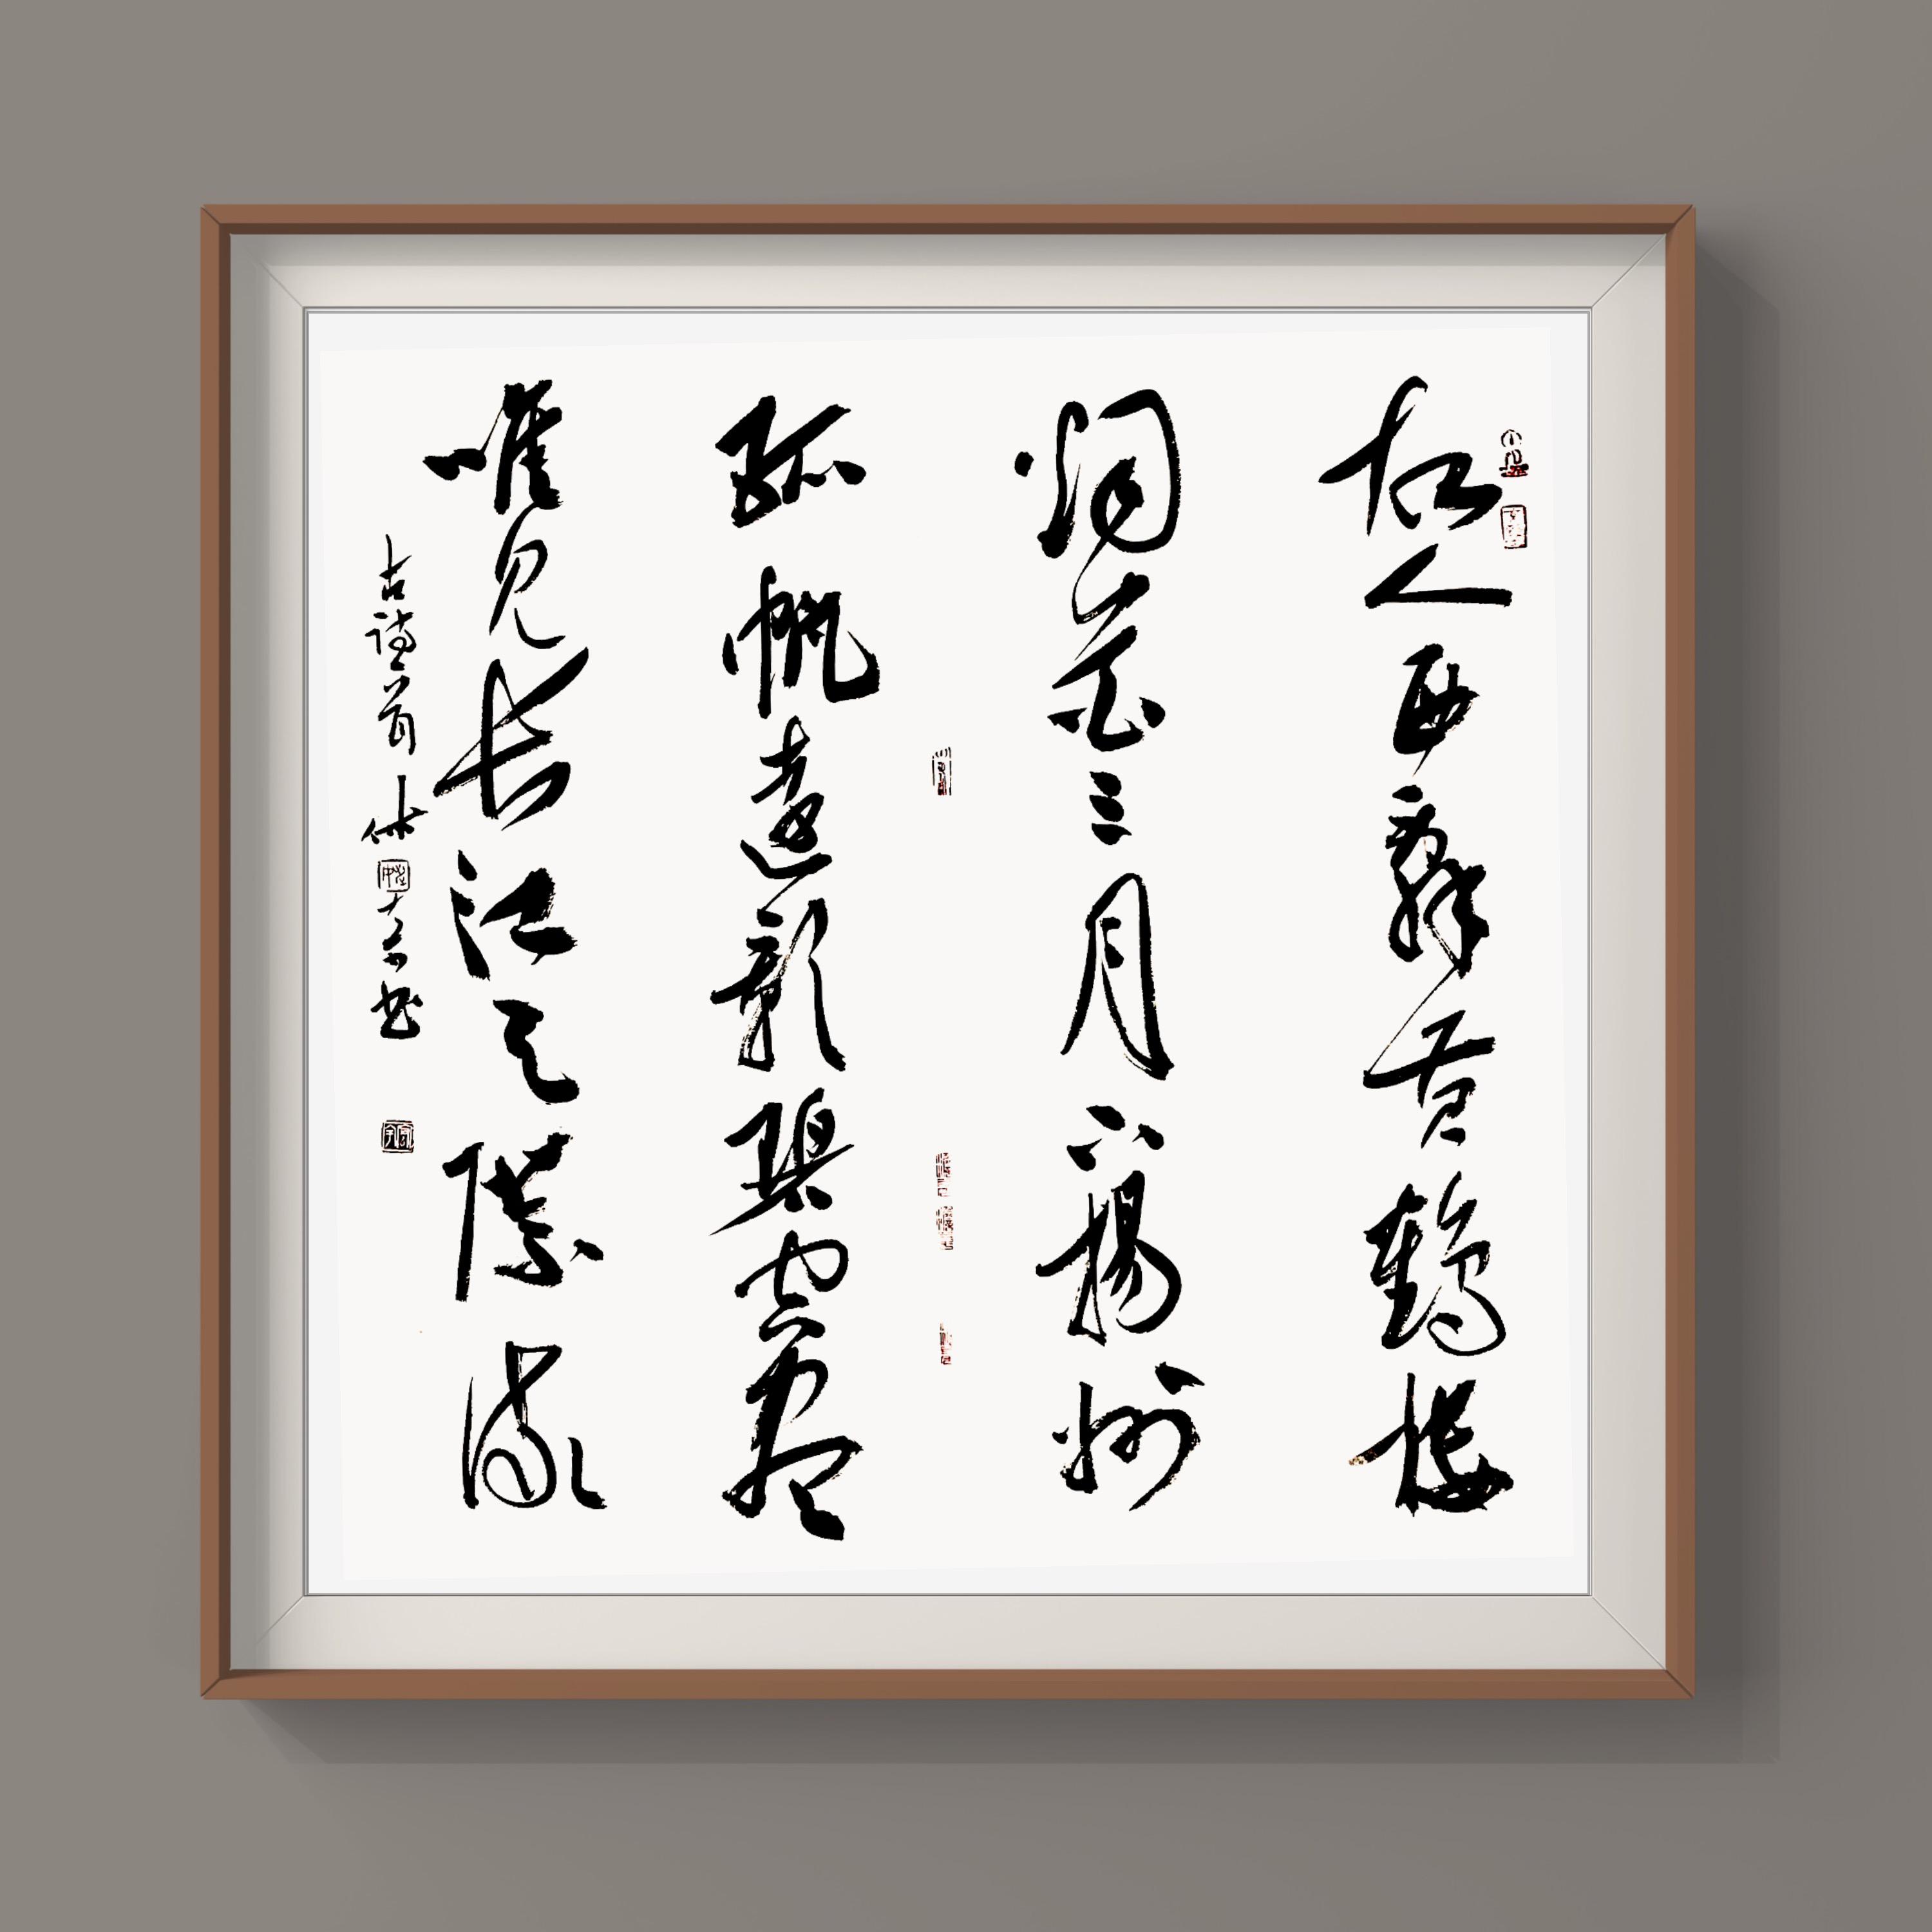 故人西辭黄鶴樓
烟花三月下揚州
孤帆遠影碧空盡
唯見長江天際流
古詩首 书